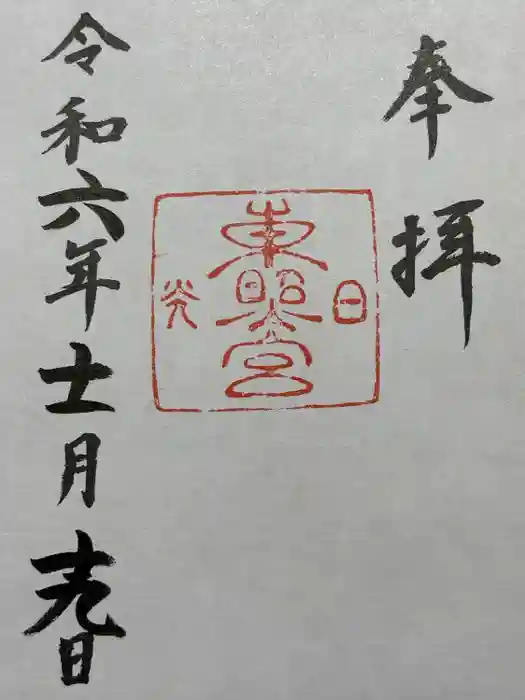 奉拝
日光
東照宮
令和六年十一月十九日